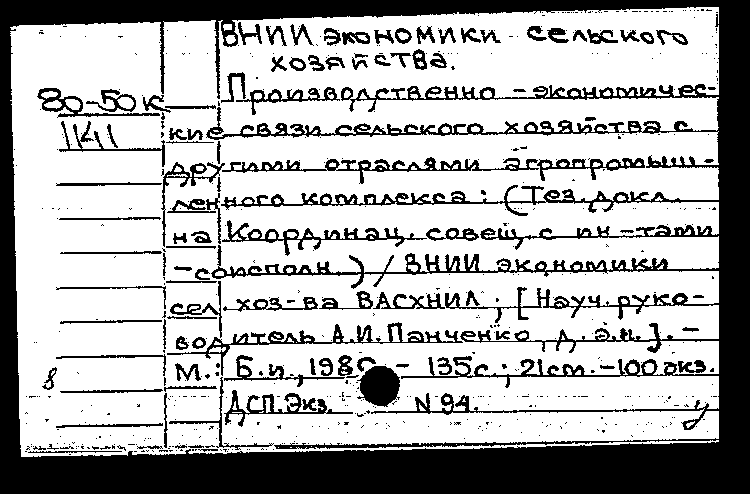 ВНИИ экономики сельского
хозяйства.
80-50к Производственно-экономичес-
кие связи сельского хозяйства с
другими отраслями агропромыш-
ленного комплекса: (Тез. докл.
на Координац. совещ. с ин-тами
-соисполн.) / ВНИИ экономики
сел. хоз-ва ВАСХНИЛ; [Науч. руко-
водитель А.И. Панченко, д.э.н.]. -
8 М.: Б.и., - 135с.; 21cm. - 100 экз.
ДСП. Экз. N 94.